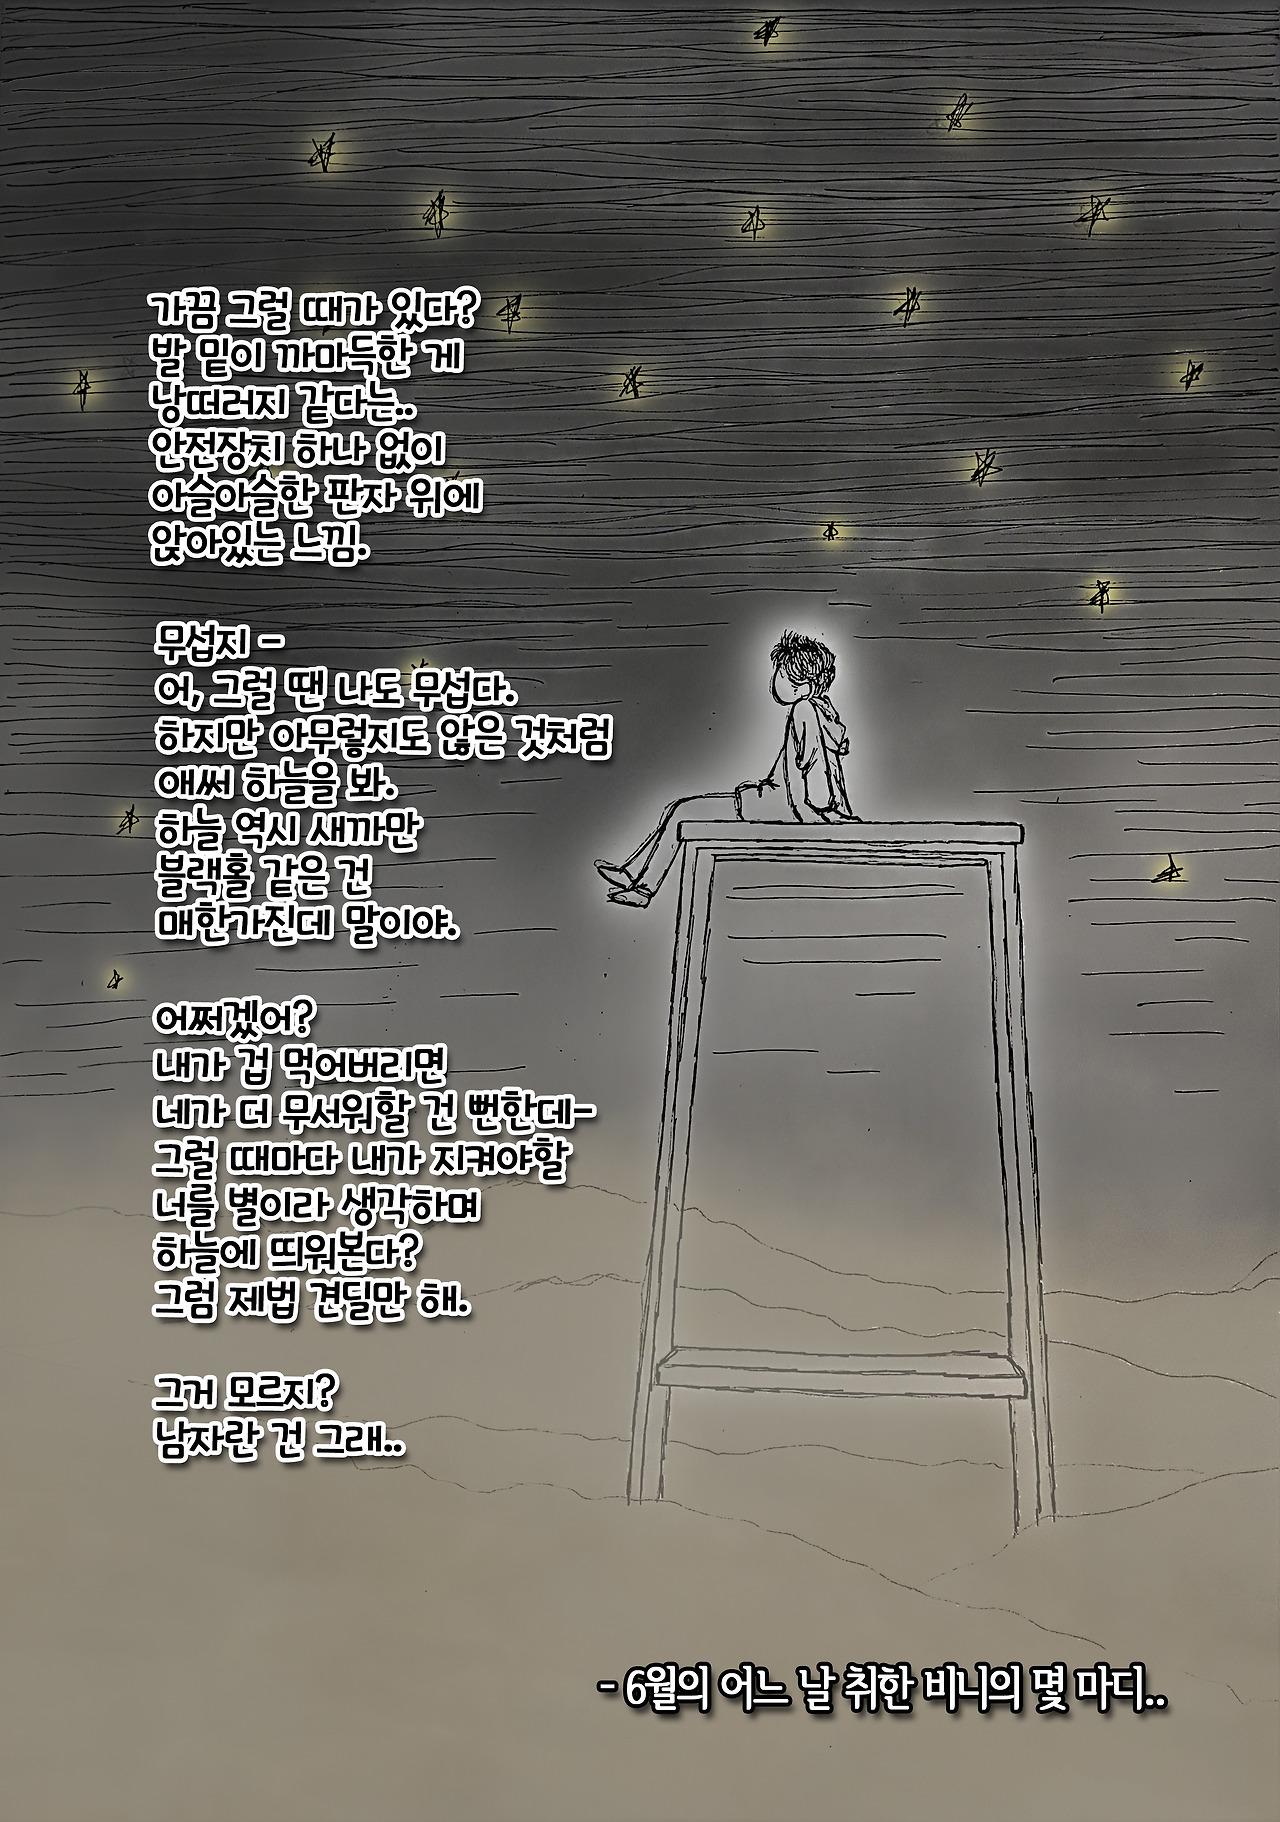 가끔 그럴 때가 있다?
발 밑이 까마득한 게
낭떠러지 같다는..
안전장치 하나 없이
아슬아슬한 판자 위에
앉아있는 느낌.
무섭지 -
어, 그럴 땐 나도 무섭다.
하지만 아무렇지도 않은 것처럼
애써 하늘을 봐.
하늘 역시 새까만
블랙홀 같은 건
매한가진데 말이야.
어쩌겠어?
내가 겁 먹어버리면
네가 더 무서워할 건 뻔한데-
그럴 때마다 내가 지켜야할
너를 별이라 생각하며
하늘에 띄워본다?
그럼 제법 견딜만 해.
그거 모르지?
남자란 건 그래..
- 6월의 어느 날 취한 비니의 몇 마디..